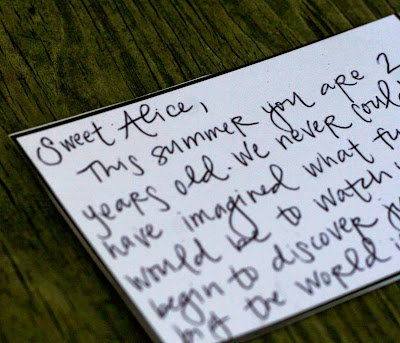 Sweet Alice,
This summer you are 2
years old. We never could
have imagined what fu
would be to watch
begin to discover
the world